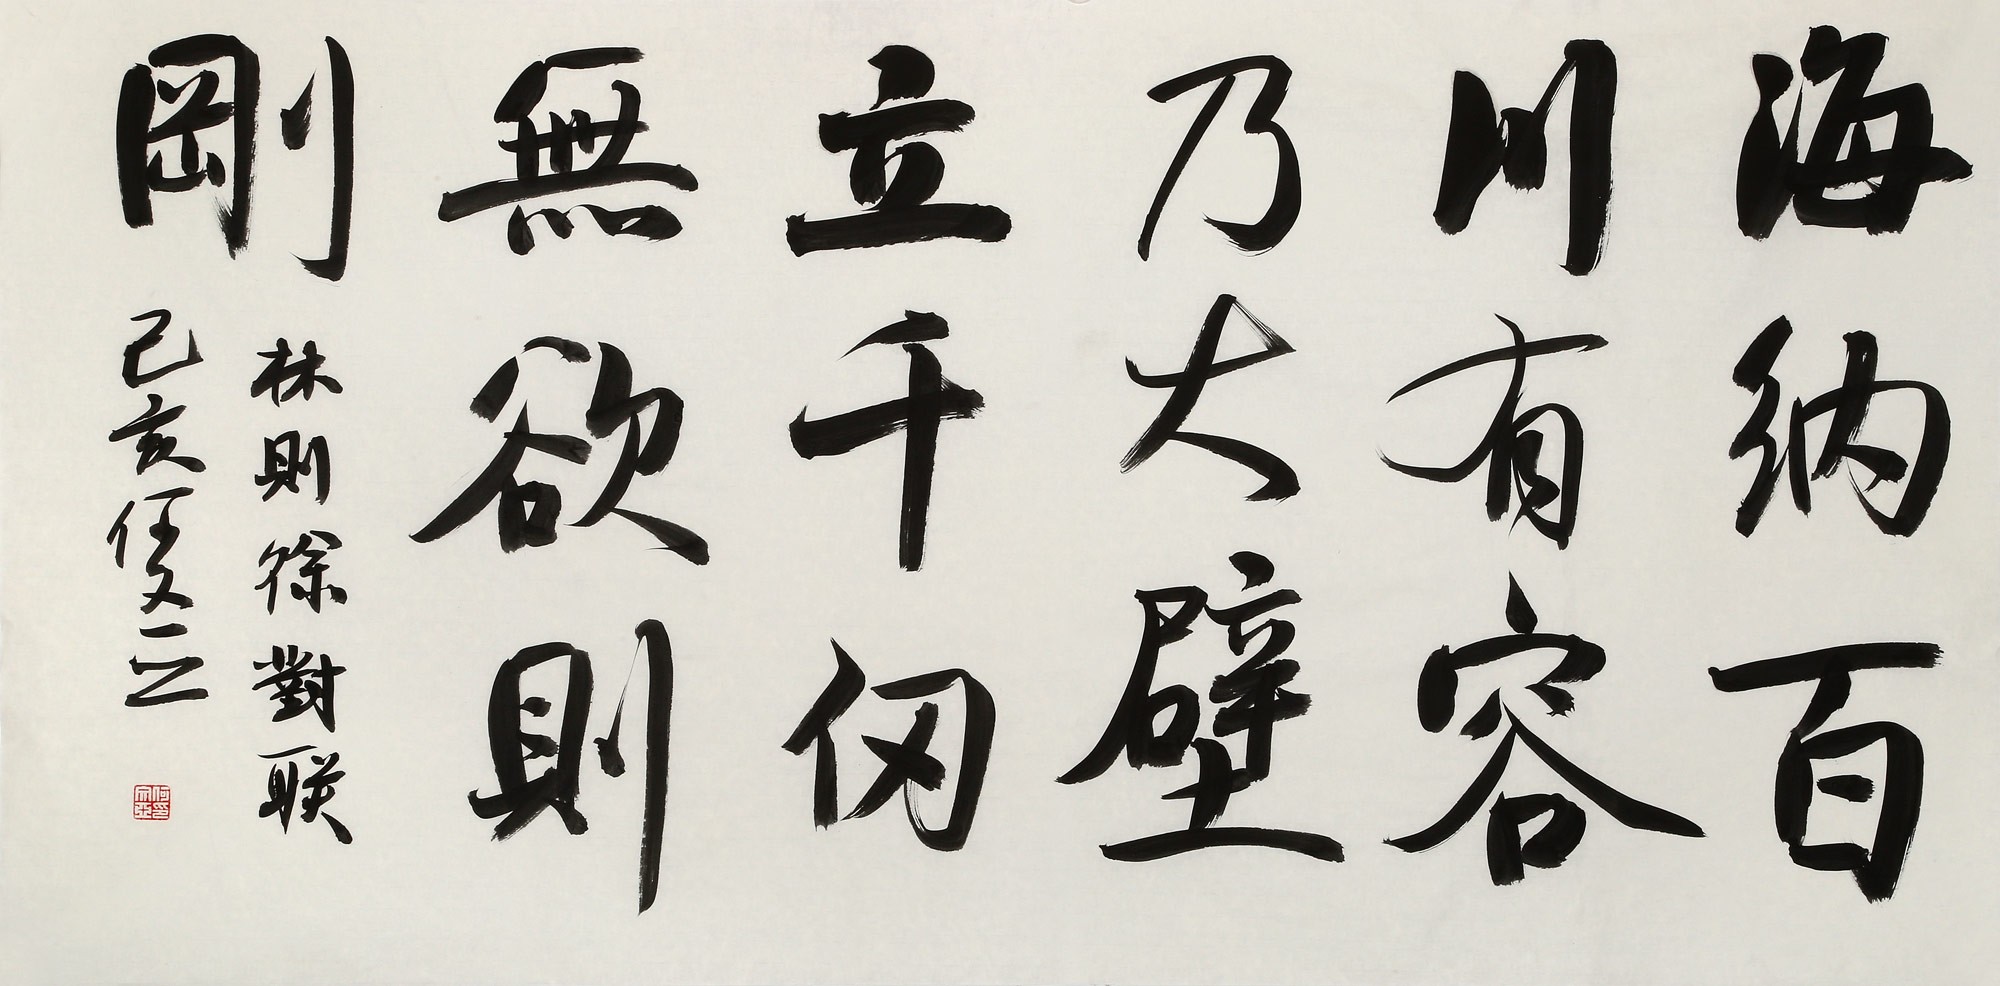 海纳百
川有容
乃大壁
立千仞
無欲則
剛
林則徐對联
己亥